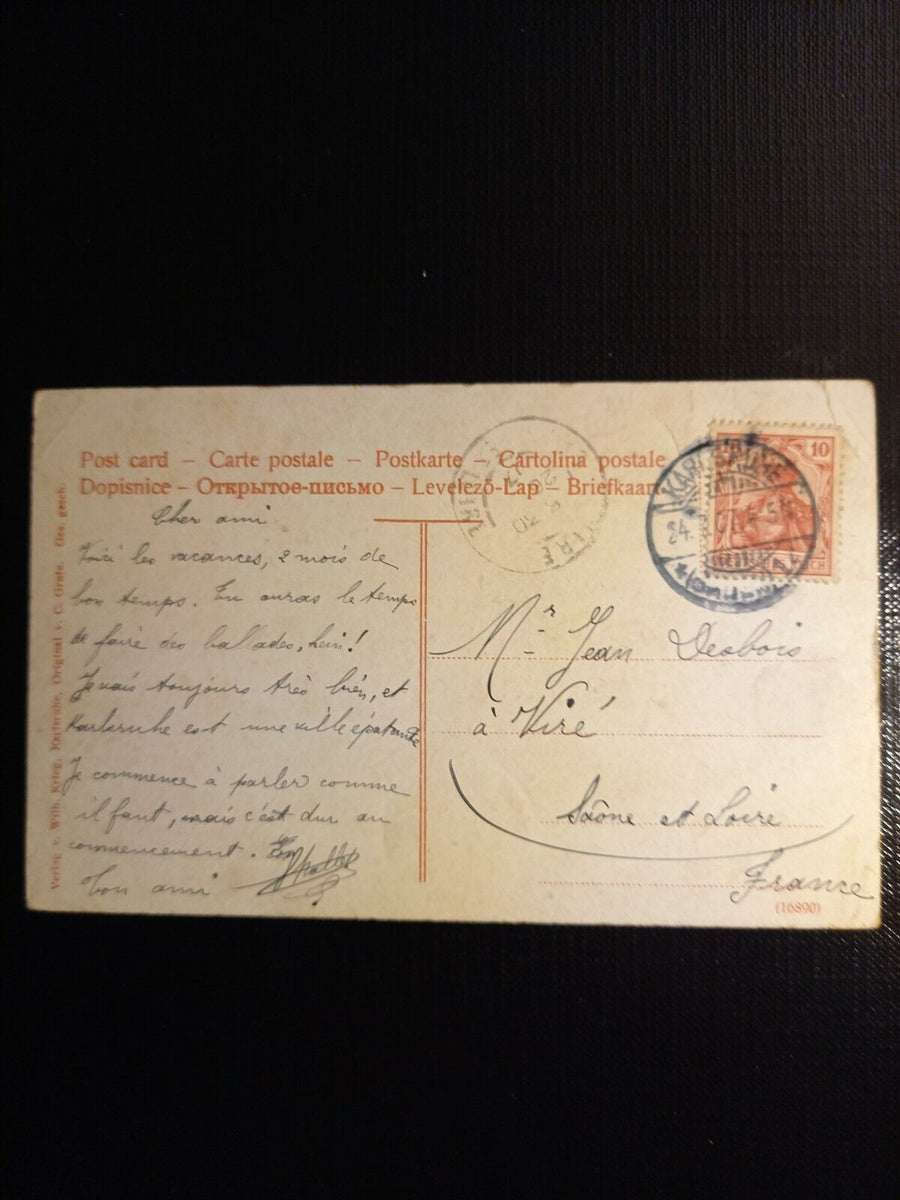 Post card – Carte postale – Postkarte – Cartolina postale
Dopisnice – Открытое-письмо – Levelező-Lap – Briefkaart
Verlag v. Wilh. Krieg, Karlsruhe, Original v. C. Grote. Ges. gesch.
Cher ami
Voici les vacances, 2 mois de
bon temps. Tu auras le temps
de faire des ballades, hein!
Je vais toujours très bien, et
Karlsruhe est une ville épatante
Je commence à parler comme
il faut, mais c'est dur au
commencement. Ton
bon ami
KARLSRUHE
24.
10
Mr Jean Desbois
à Viré
Saône et Loire
France
(16890)